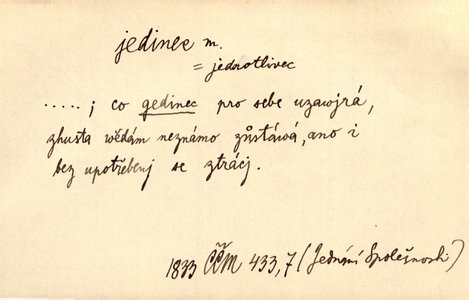 jedinec m.
= jednotlivec
.....; co gedinec pro sebe uzawjrá,
zhusta wědám neznámo zůstáwá, ano i
bez upotřebenj se ztrácj.
1833 ČČM 433,7 (Jednání Společnosti)